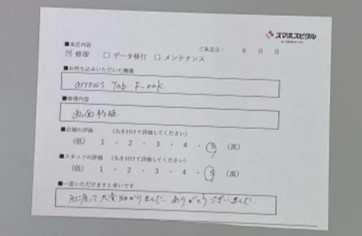 スマホスピタル
ご来店日： 年 月 日
■ご依頼内容
☑修理 □データ移行 □メンテナンス
■お持ち込みいただいた機種
arrows Tab
■修理内容
画面
■店舗の評価 (丸を付けて評価してください)
(低) 1 ・ 2 ・ 3 ・ 4 ・ 5 (高)
■スタッフの評価 (丸を付けて評価してください)
(低) 1 ・ 2 ・ 3 ・ 4 ・ 5 (高)
■一言いただけますと幸いです
大変助かりました。ありがとうございました。